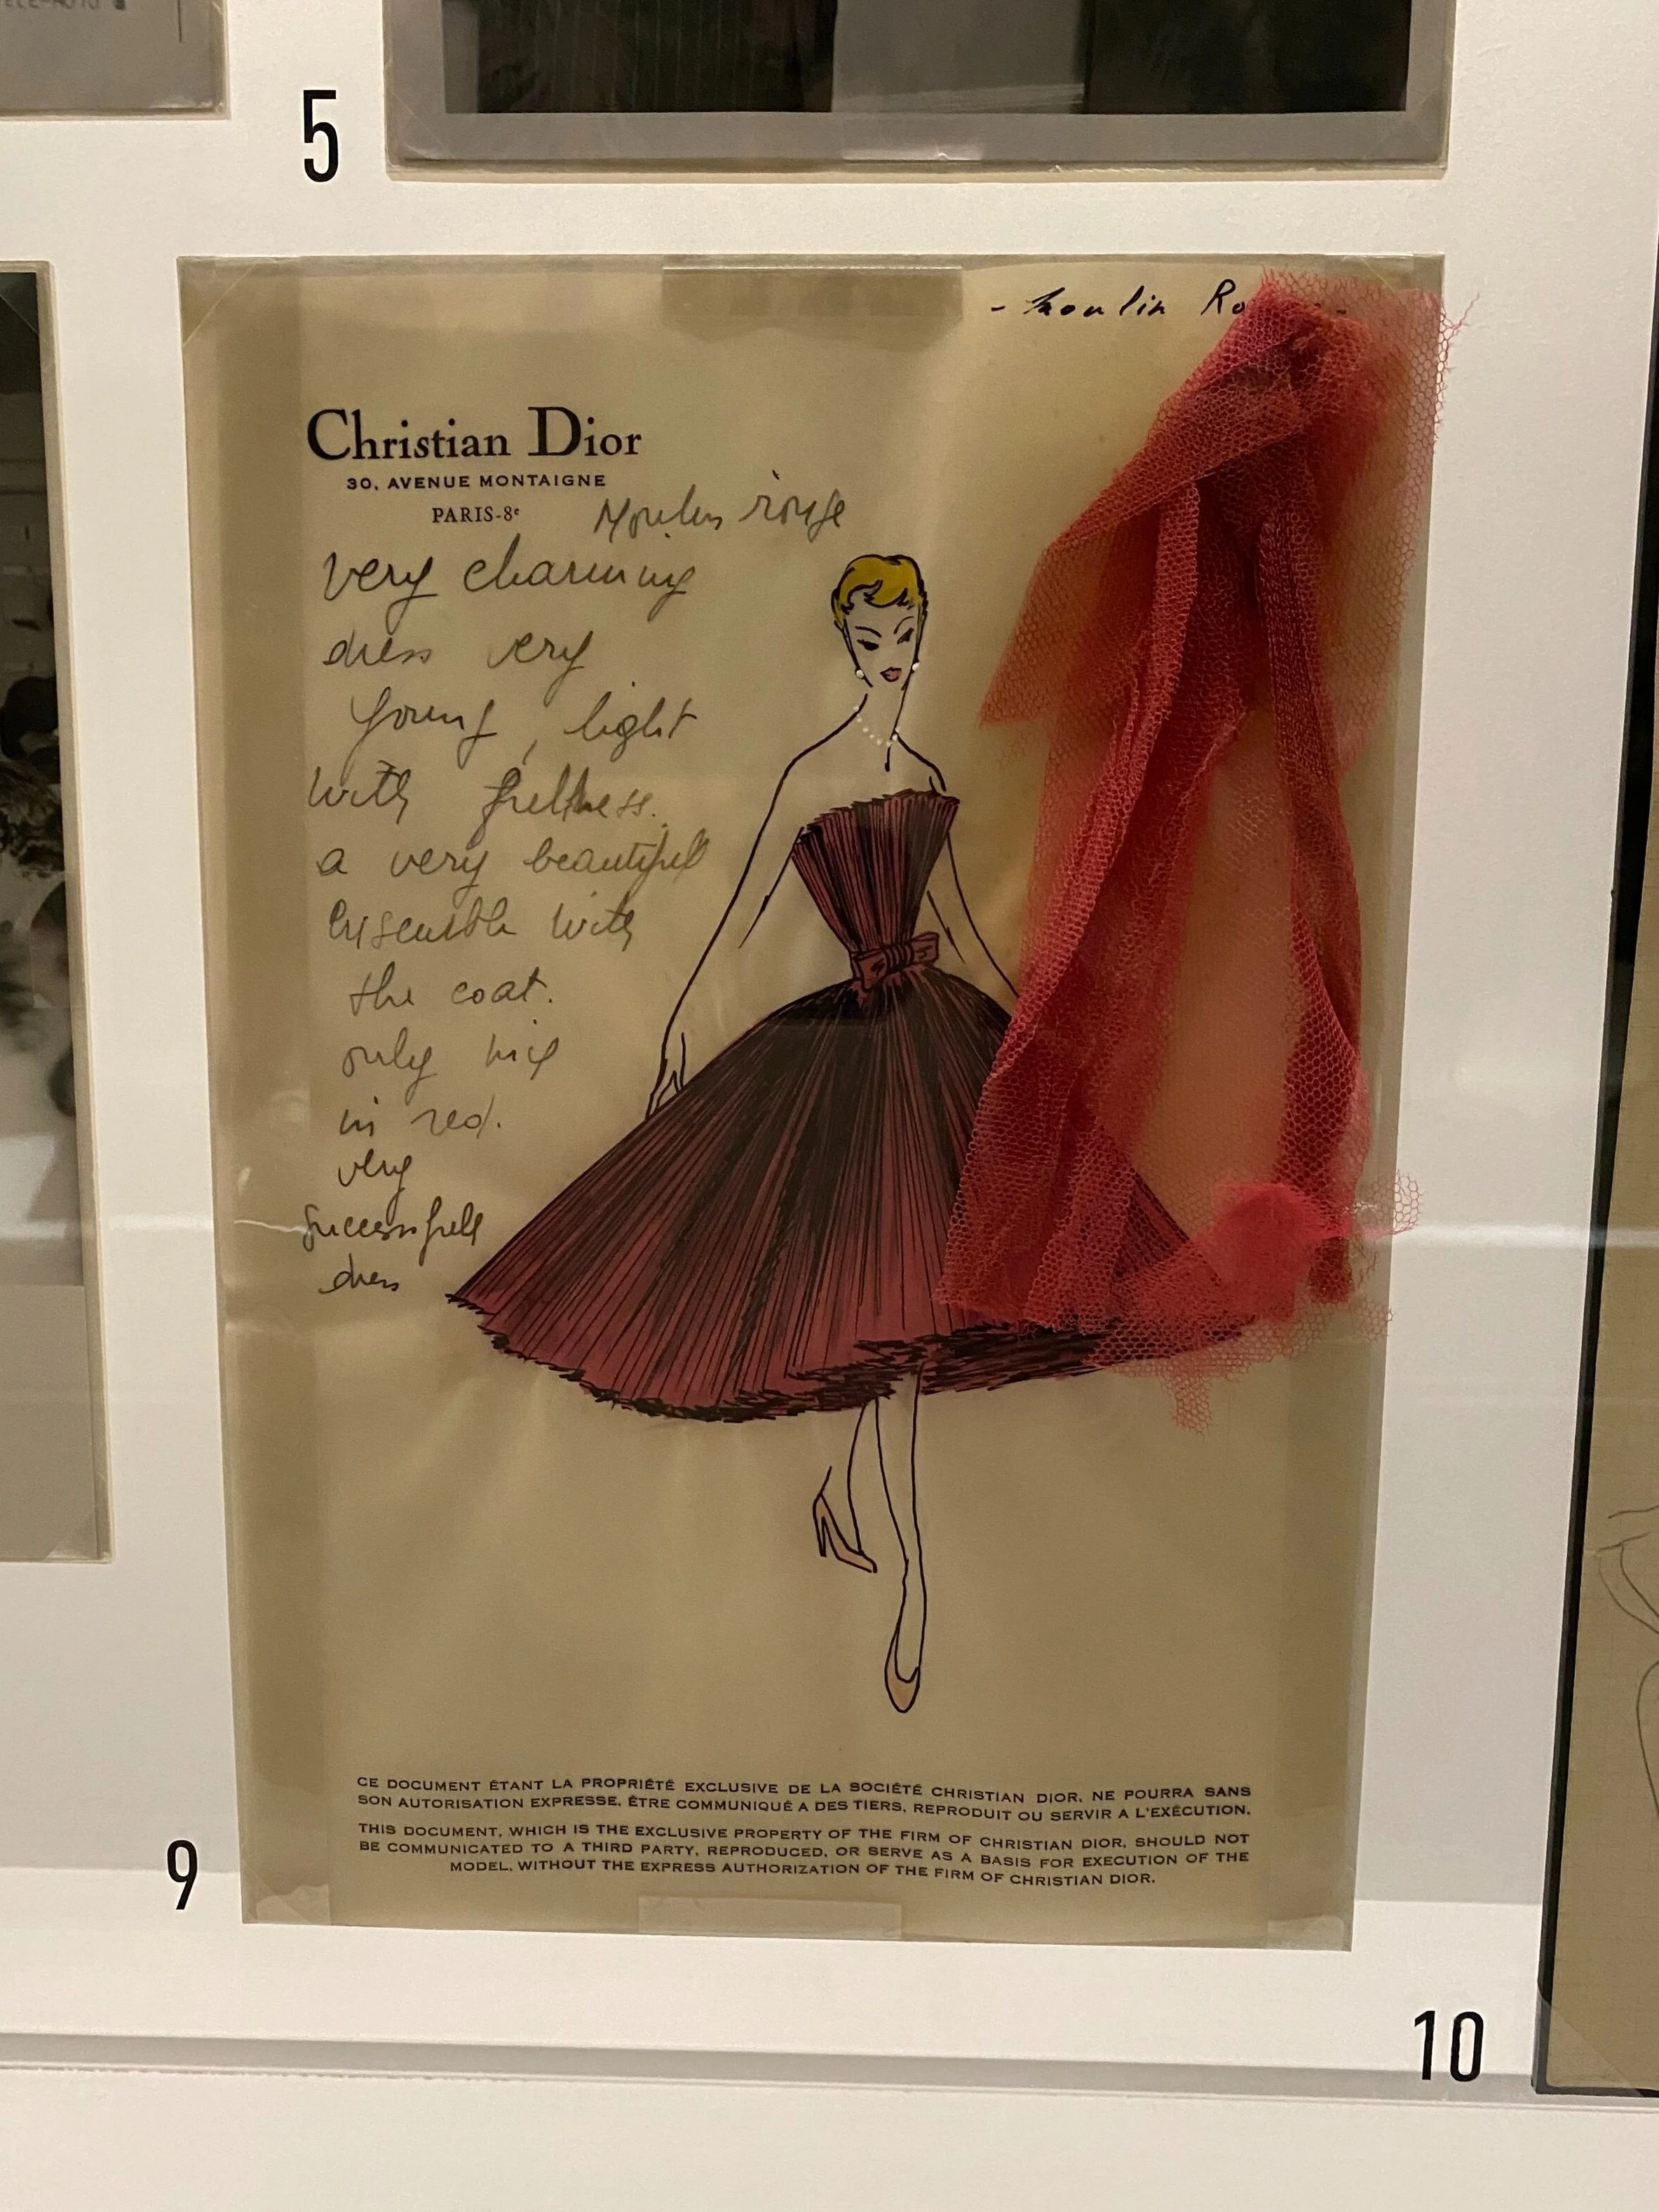 5
- Moulin Ro
Christian Dior
30, AVENUE MONTAIGNE
PARIS-8e
Moulin rouge
very charming
dress very
young, light
with fullness.
a very beautifull
ensemble with
the coat.
only nice
in red.
very
successfull
dress
CE DOCUMENT ÉTANT LA PROPRIÉTÉ EXCLUSIVE DE LA SOCIÉTÉ CHRISTIAN DIOR, NE POURRA SANS
SON AUTORISATION EXPRESSE, ÊTRE COMMUNIQUÉ A DES TIERS, REPRODUIT OU SERVIR A L'EXÉCUTION.
THIS DOCUMENT, WHICH IS THE EXCLUSIVE PROPERTY OF THE FIRM OF CHRISTIAN DIOR, SHOULD NOT
BE COMMUNICATED TO A THIRD PARTY, REPRODUCED, OR SERVE AS A BASIS FOR EXECUTION OF THE
MODEL, WITHOUT THE EXPRESS AUTHORIZATION OF THE FIRM OF CHRISTIAN DIOR.
9
10